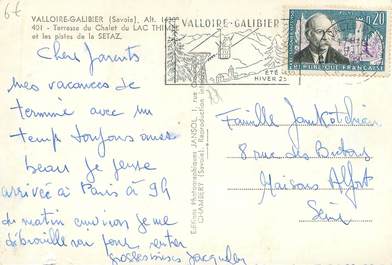 6€
VALLOIRE-GALIBIER (Savoie), Alt. 1430
401 - Terrasse du Chalet du LAC THIMEL
et les pistes de la SETAZ.
VALLOIRE-GALIBIER
ÉTÉ
HIVER
0,20
RÉPUBLIQUE FRANÇAISE
Chers Parents
mes vacances se
termine avec un
temps toujours aussi
beau je pense
arrivée à Paris à 9h
du matin environ je me
débrouillerai pour rentrer
Gosses bises Jacqueline
Editions Photographiques JANSOL
CHAMBERY (Savoie), Reproduction
Famille
8 rue des
Maisons Alfort
Seine